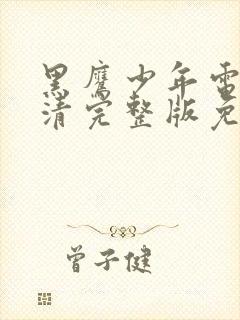 黑鹰少年电
清完整版免
曾子健